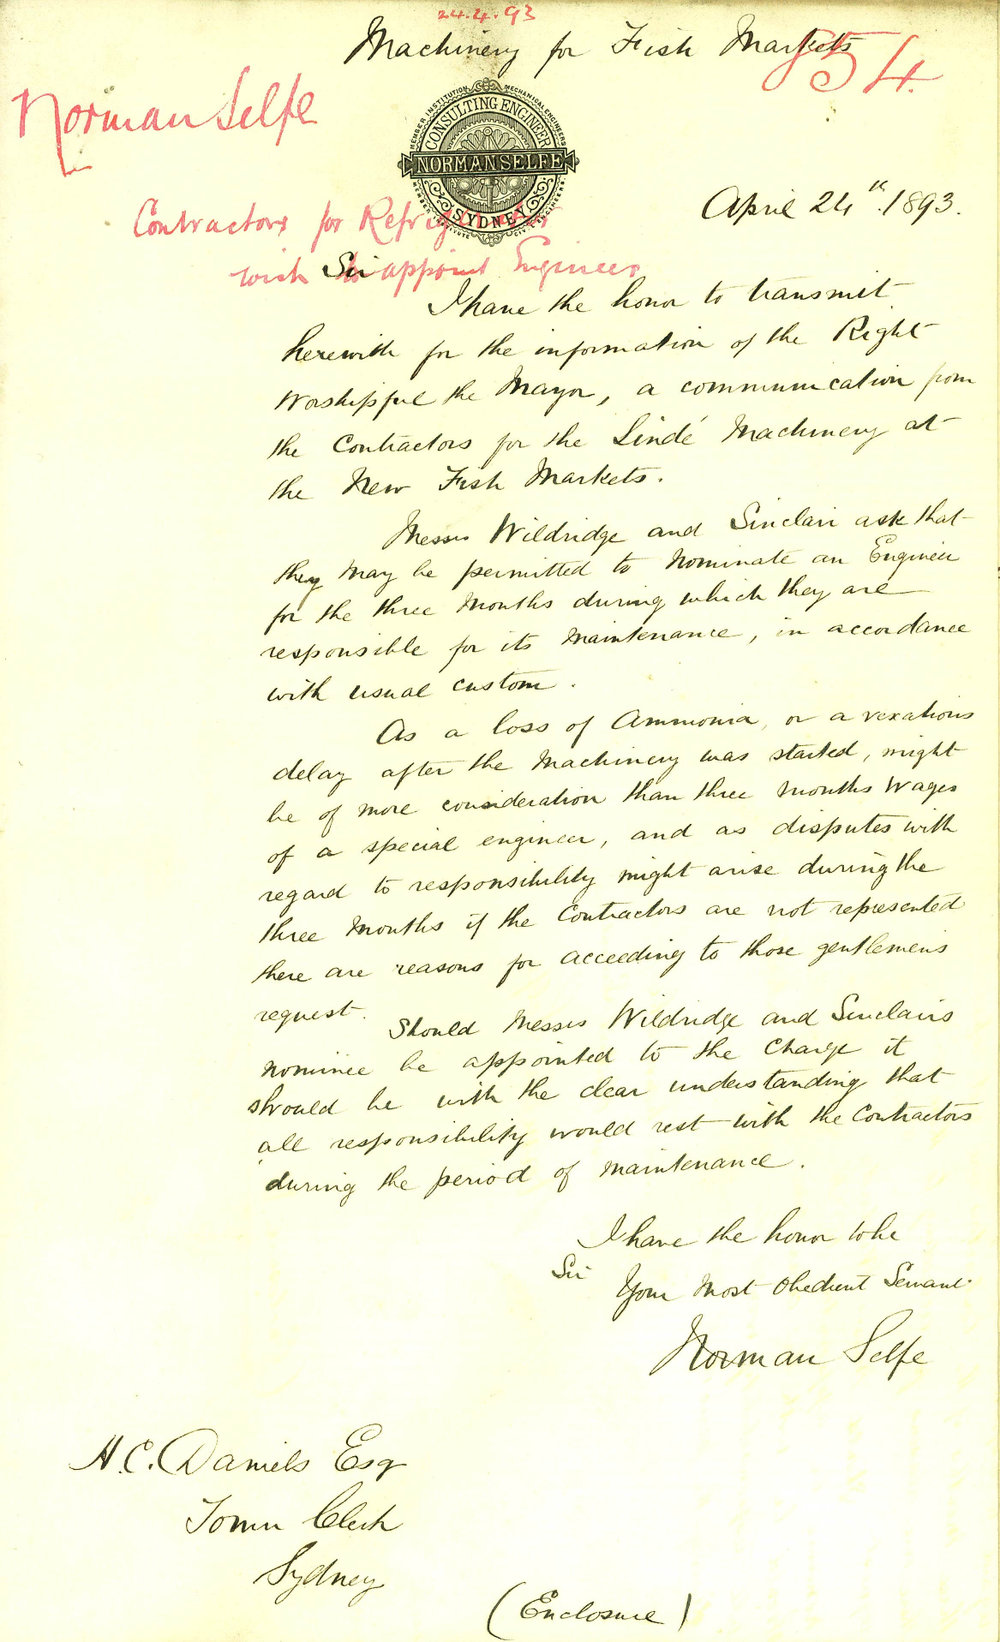 24.4.93
Machinery for Fish Markets
854
Norman Selfe
MEMBER INSTITUTION MECHANICAL ENGINEERS
CONSULTING ENGINEER
NORMAN SELFE
SYDNEY
Contractors for Refrig
April 24th 1893.
wish to appoint Engineer
Sir
I have the honor to transmit
herewith for the information of the Right
Worshipful the Mayor, a communication from
the Contractors for the Lindé Machinery at
the New Fish Markets.
Messrs Wildridge and Sinclair ask that
they may be permitted to nominate an Engineer
for the three Months during which they are
responsible for its maintenance, in accordance
with usual custom.
As a loss of Ammonia, or a vexatious
delay after the Machinery was started, might
be of more consideration than three months wages
of a special engineer, and as disputes with
regard to responsibility might arise during the
three months if the Contractors are not represented
there are reasons for acceeding to those gentlemens
request.
Should Messrs Wildridge and Sinclairs
nominee be appointed to the charge it
should be with the clear understanding that
all responsibility would rest with the Contractors
during the period of maintenance.
I have the honor to be
Sir
Your Most Obedient Servant
Norman Selfe
H. C. Daniels Esq
Town Clerk
Sydney
(Enclosure)